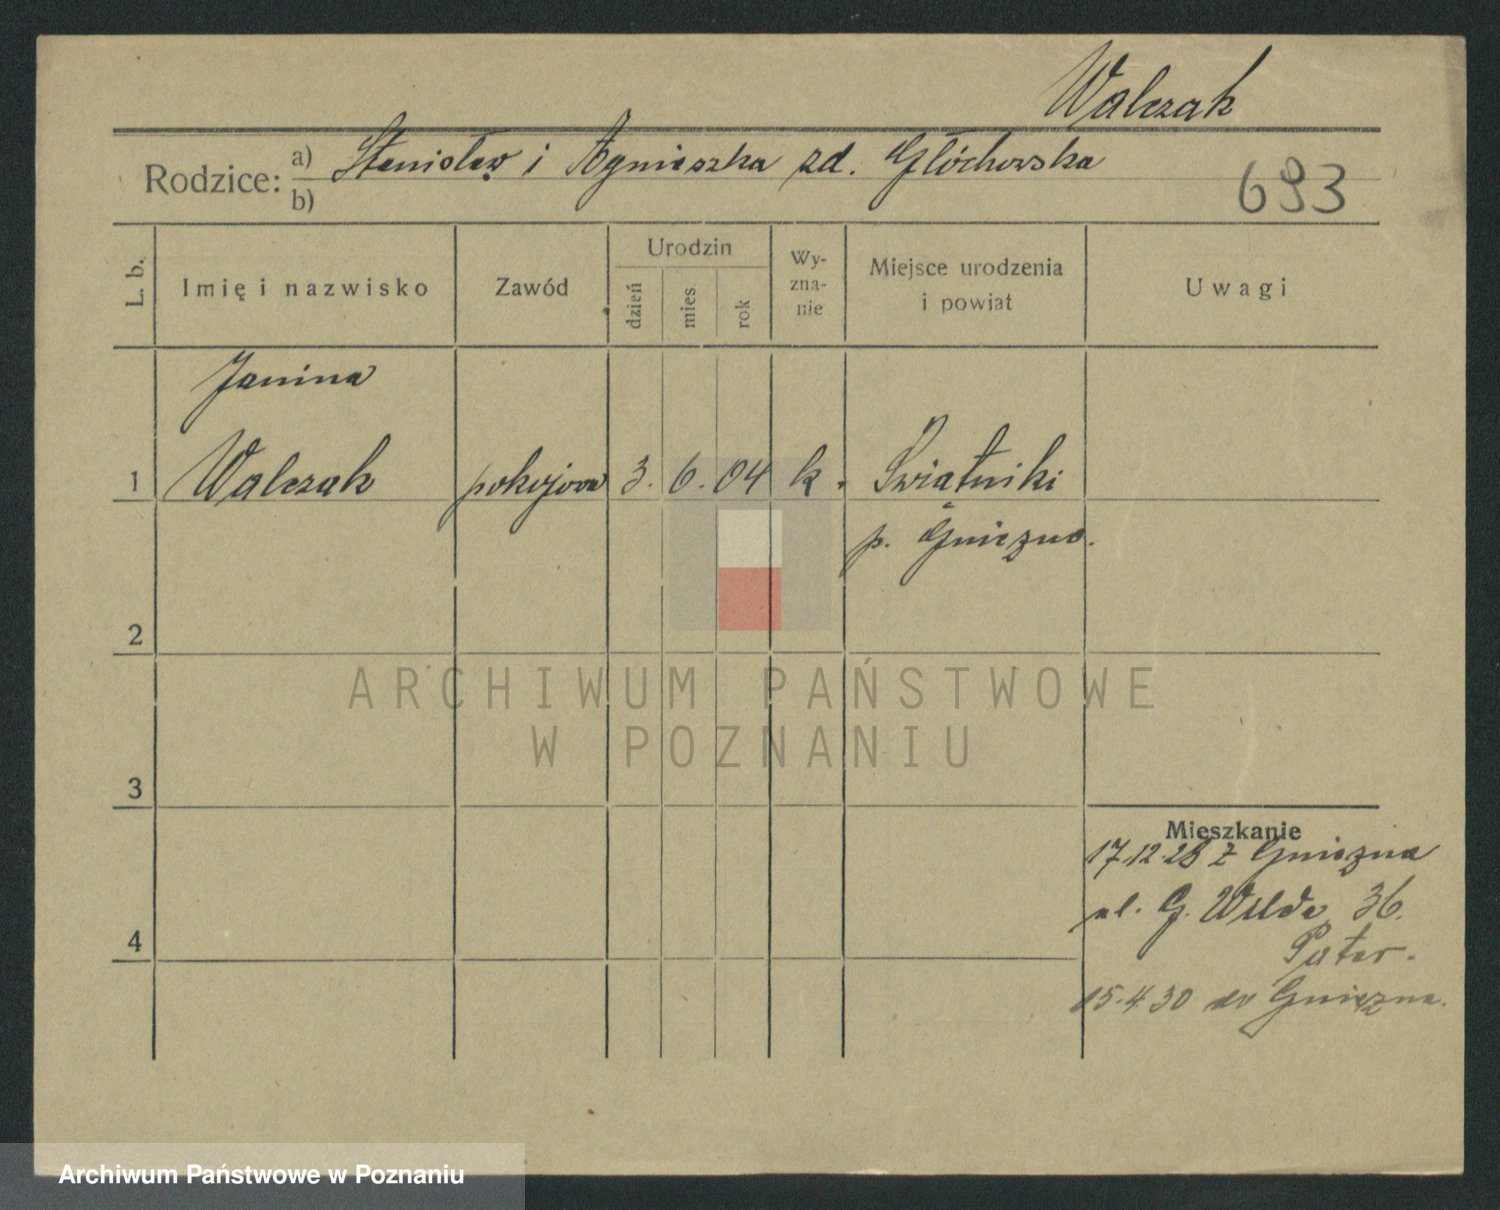 Walczak
Rodzice: a) Stanisław i Agnieszka zd. Głóchowska
b)
693
L. b.
Imię i nazwisko
Zawód
Urodzin
dzień
mies.
rok
Wy-
zna-
nie
Miejsce urodzenia
i powiat
Uwagi
Janina
1 Walczak pokojowa 3. 6. 04 k. Świątniki
p. Gniezno.
2
3
4
Mieszkanie
17.12.28 z Gniezna
ul. G. Wilda 36.
15.4.30 do Gniezna.
ARCHIWUM PAŃSTWOWE
W POZNANIU
Archiwum Państwowe w Poznaniu